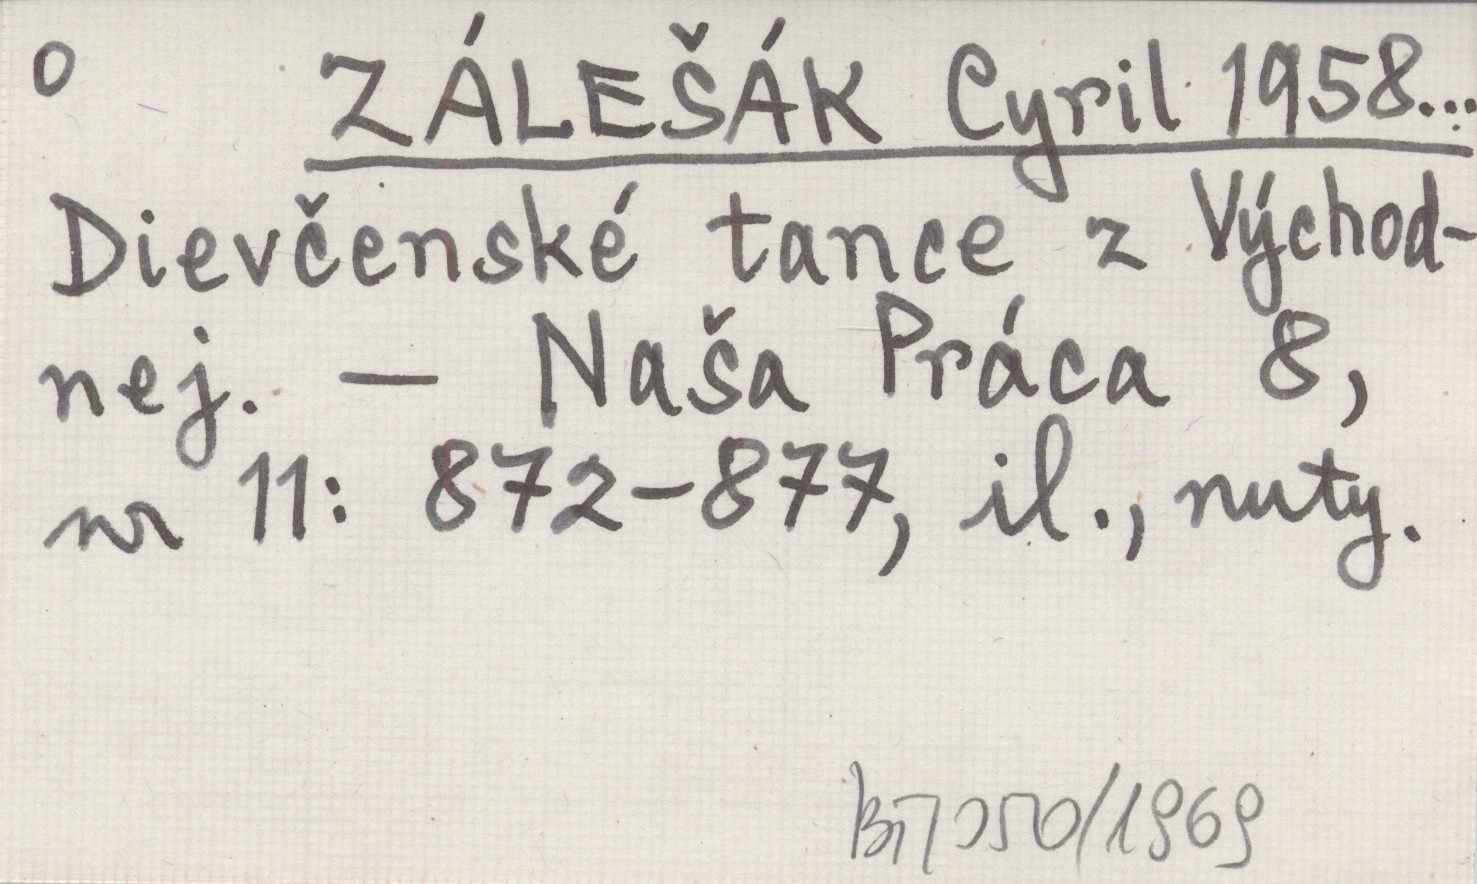 o ZÁLEŠÁK Cyril 1958...
Dievčenské tance z Východ-
nej. — Naša Práca 8,
nr 11: 872-877, il., nuty.
/1969